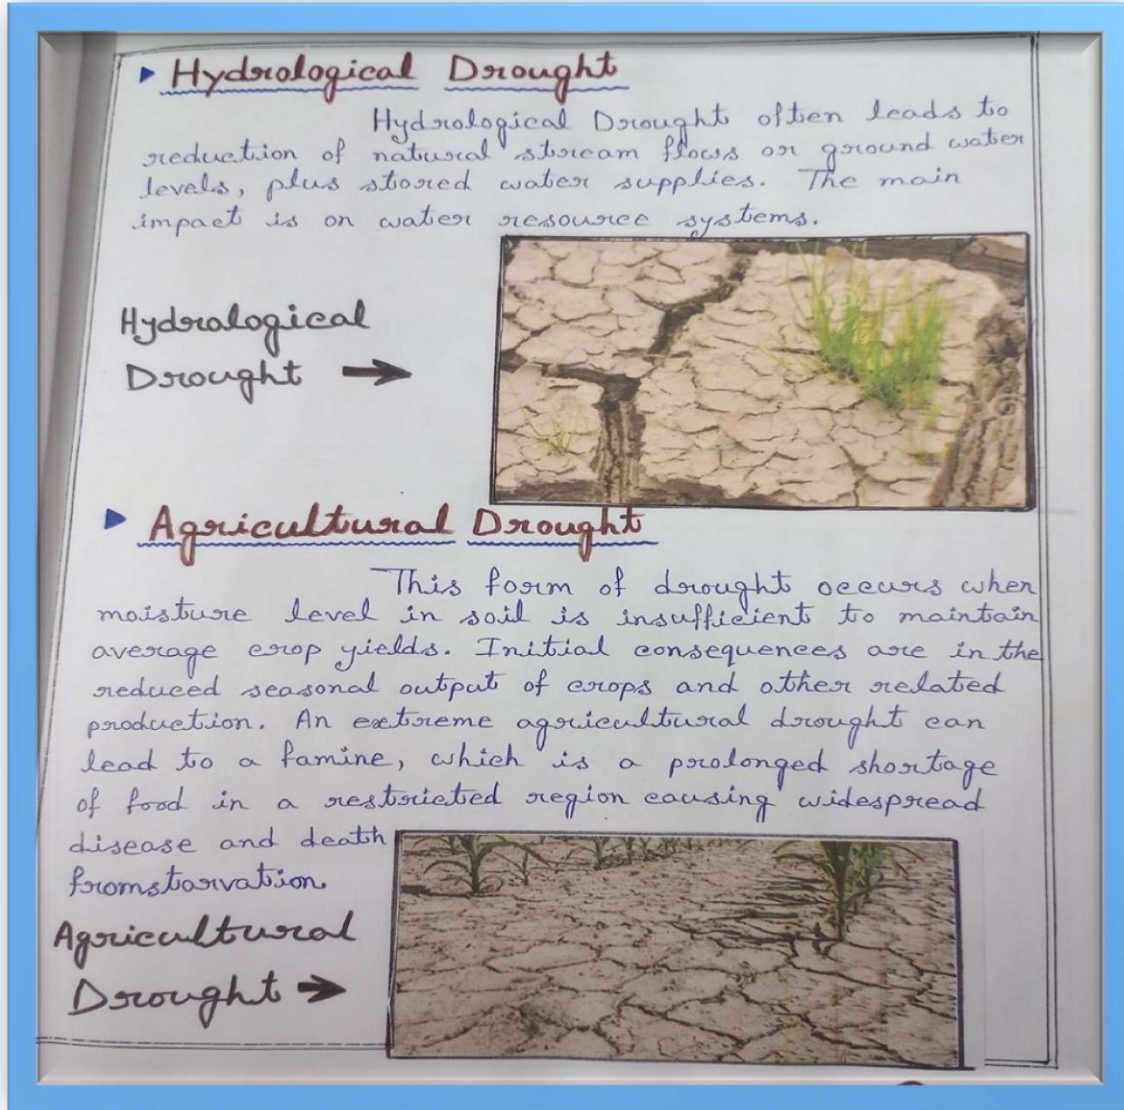 Hydrological Drought
Hydrological Drought often leads to
reduction of natural stream flows or ground water
levels, plus stored water supplies. The main
impact is on water resource systems.
Hydrological
Drought →
Agricultural Drought
This form of drought occurs when
moisture level in soil is insufficient to maintain
average crop yields. Initial consequences are in the
reduced seasonal output of crops and other related
production. An extreme agricultural drought can
lead to a famine, which is a prolonged shortage
of food in a restricted region causing widespread
disease and death
fromstarvation.
Agricultural
Drought →